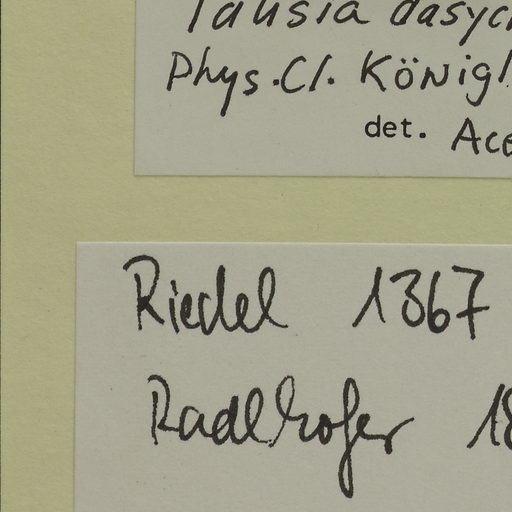 dasyc
Phys. Cl. Königl.
det. Ace
Riedel 1367
Radlkofer 18